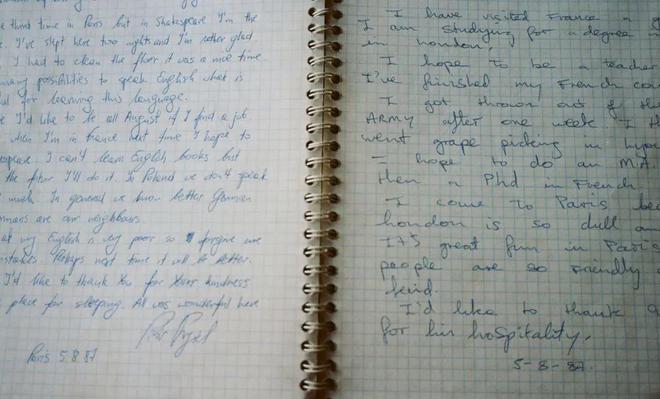 third time in Paris but in Shakespeare I'm the
I've slept here too nights and I'm rather glad
I had to clean the floor it was a nice time
many possibilities to speak English what is
for learning this language.
I'd like to be all August if I find a job
when I'm in france next time I hope to
I can't learn English books but
the floor I'll do it. In Poland we don't speak
much. In general we know better German
are our neighbours.
my English is very poor so forgive me
Perhaps next time it will be better.
I'd like to thank You for Your kindness
place for sleeping. All was wonderful here
Paris 5.8.87
I have visited France
I am studying for a degree
in London.
I hope to be a teacher
I've finished my French
I got thrown out of
ARMY after one week I
went grape picking in
I hope to do an M.A.
then a Phd in French
I come to Paris
London is so dull
It's great fun in Paris
people are so friendly
kind.
I'd like to thank
for his hospitality.
5-8-87.